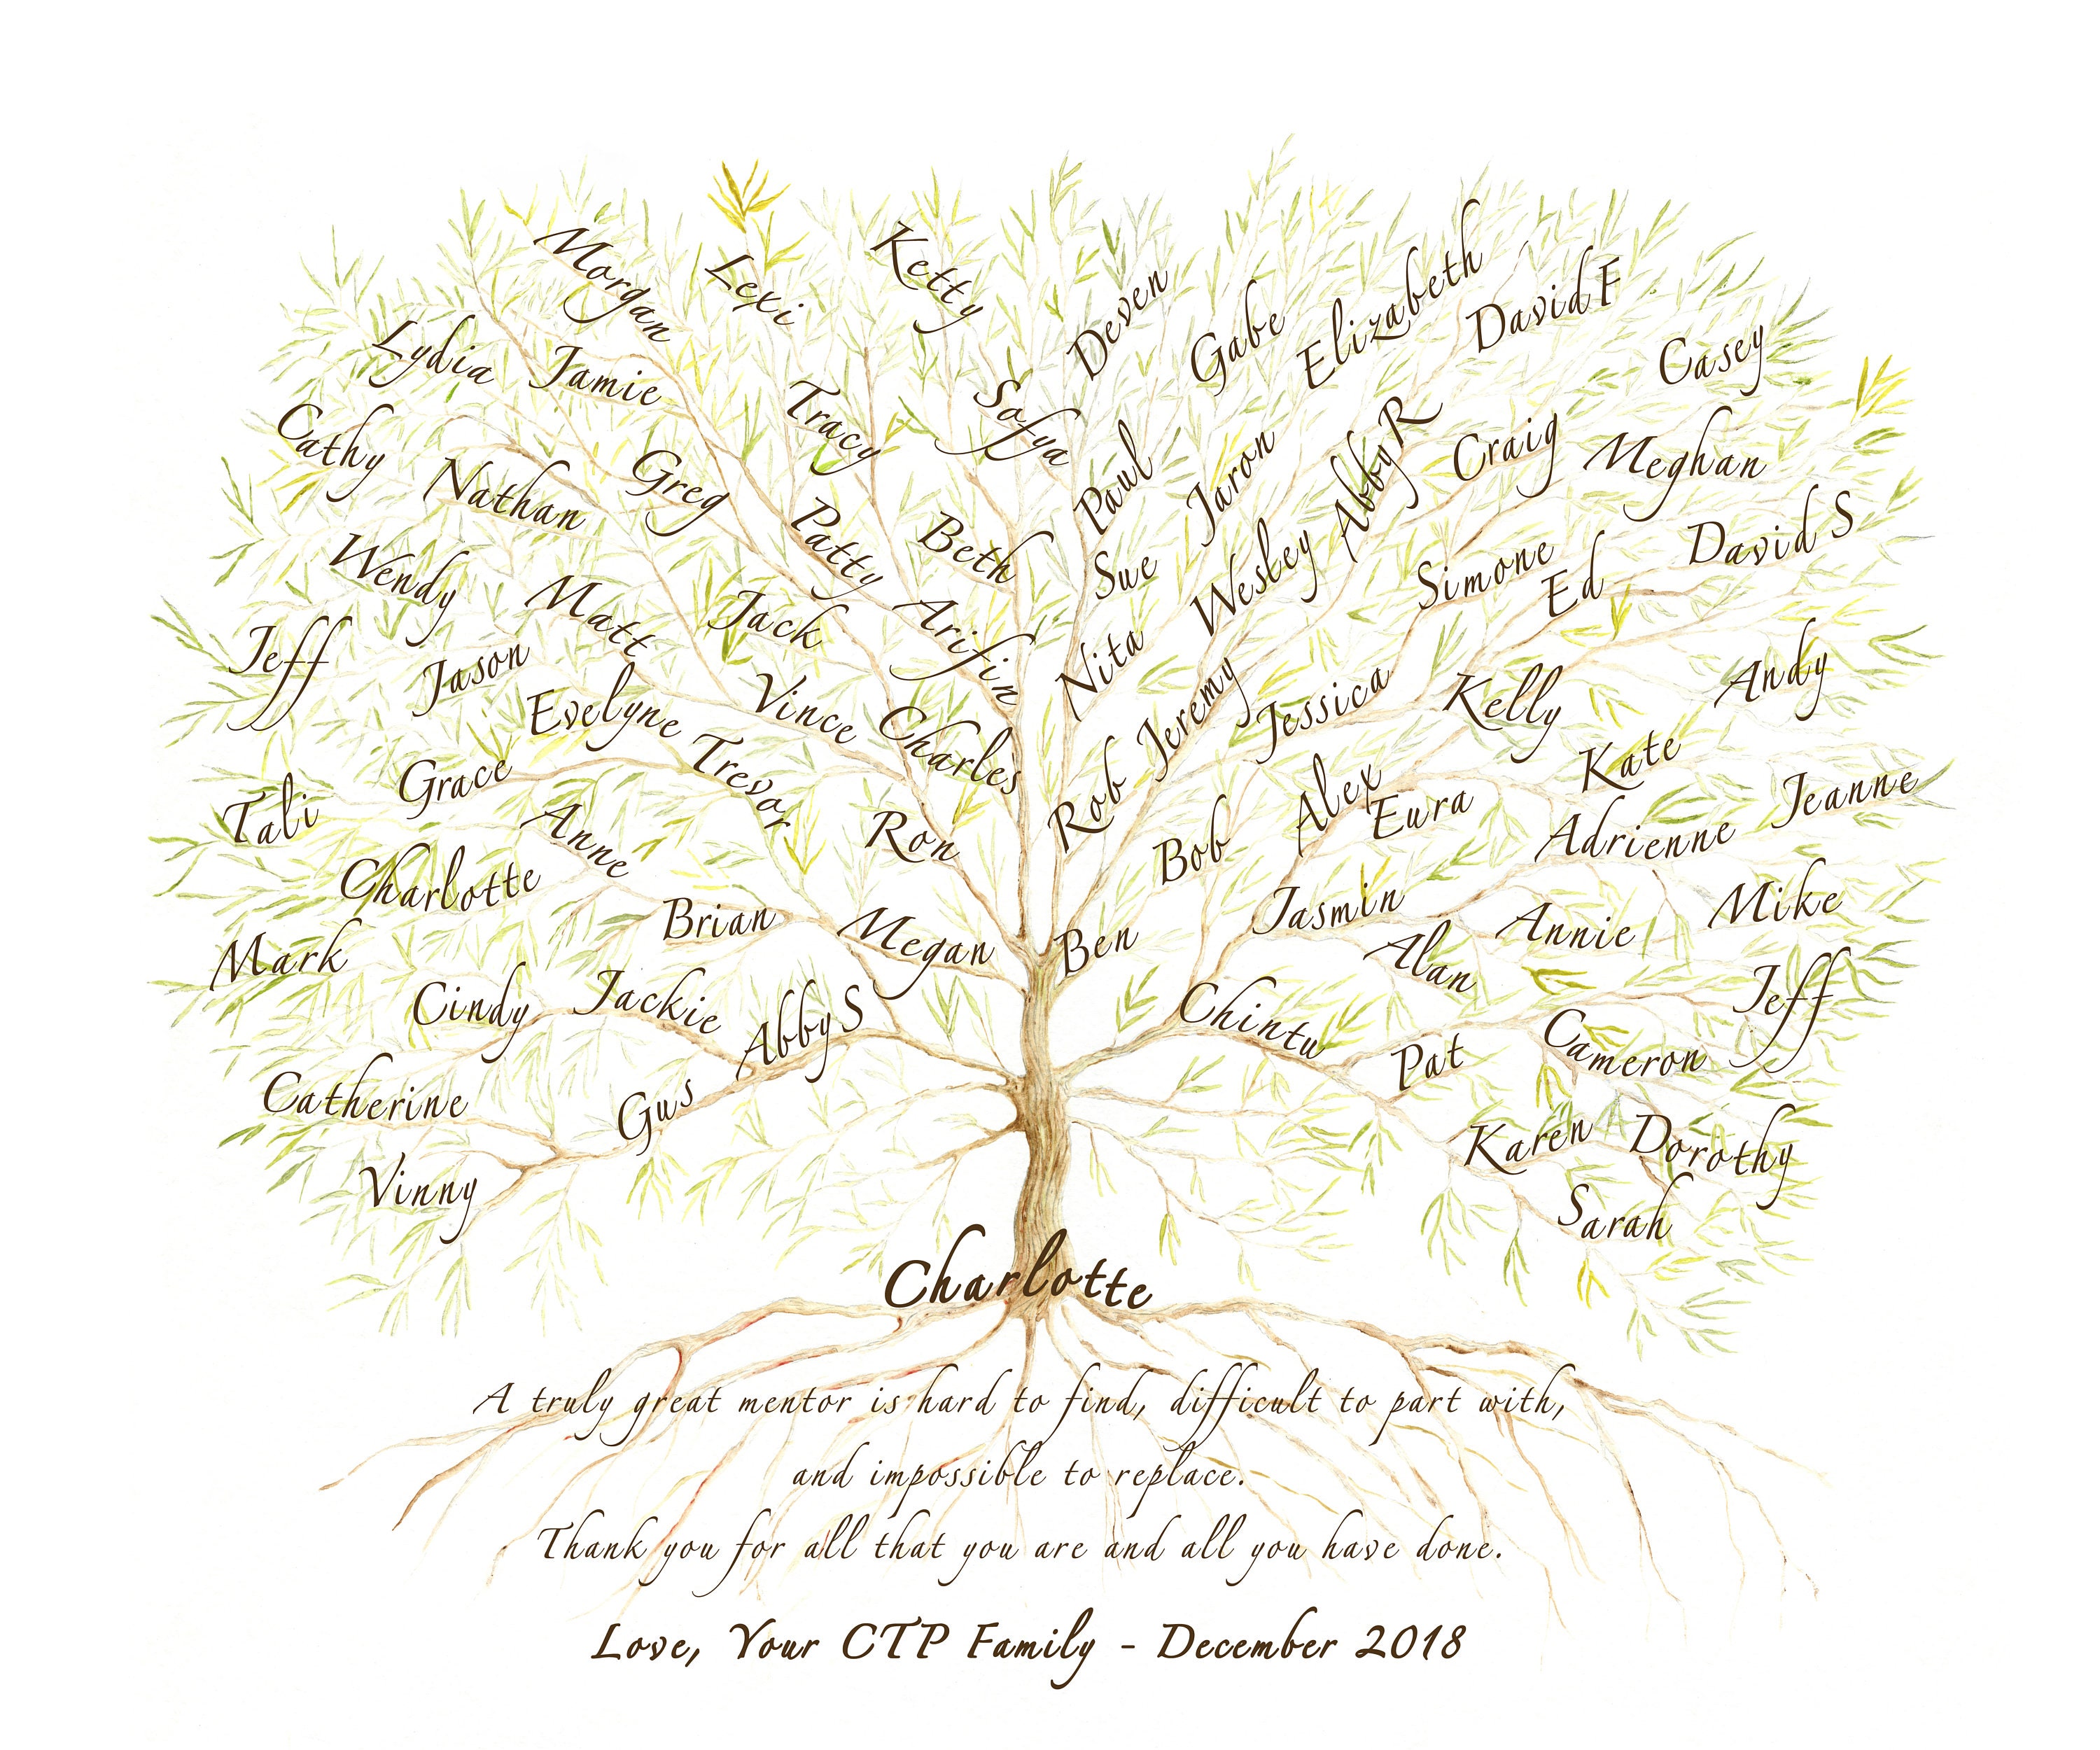 Morgan
Lexi
Ketty
Deven
Gabe
Elizabeth
David F
Casey
Lydia
Jamie
Tracy
Sofya
Paul
Jaron
Abby R
Craig
Meghan
Cathy
Nathan
Greg
Patty
Beth
Sue
Wesley
Simone
Ed
David S
Wendy
Matt
Jack
Arifin
Nita
Jeff
Jason
Evelyne
Vince
Charles
Jeremy
Jessica
Kelly
Andy
Tali
Grace
Trevor
Ron
Rob
Bob
Alex
Eura
Kate
Adrienne
Jeanne
Anne
Charlotte
Brian
Megan
Ben
Jasmin
Alan
Annie
Mike
Mark
Cindy
Jackie
Abby S
Chintu
Pat
Cameron
Jeff
Catherine
Gus
Karen
Dorothy
Vinny
Sarah
Charlotte
A truly great mentor is hard to find, difficult to part with,
and impossible to replace.
Thank you for all that you are and all you have done.
Love, Your CTP Family - December 2018